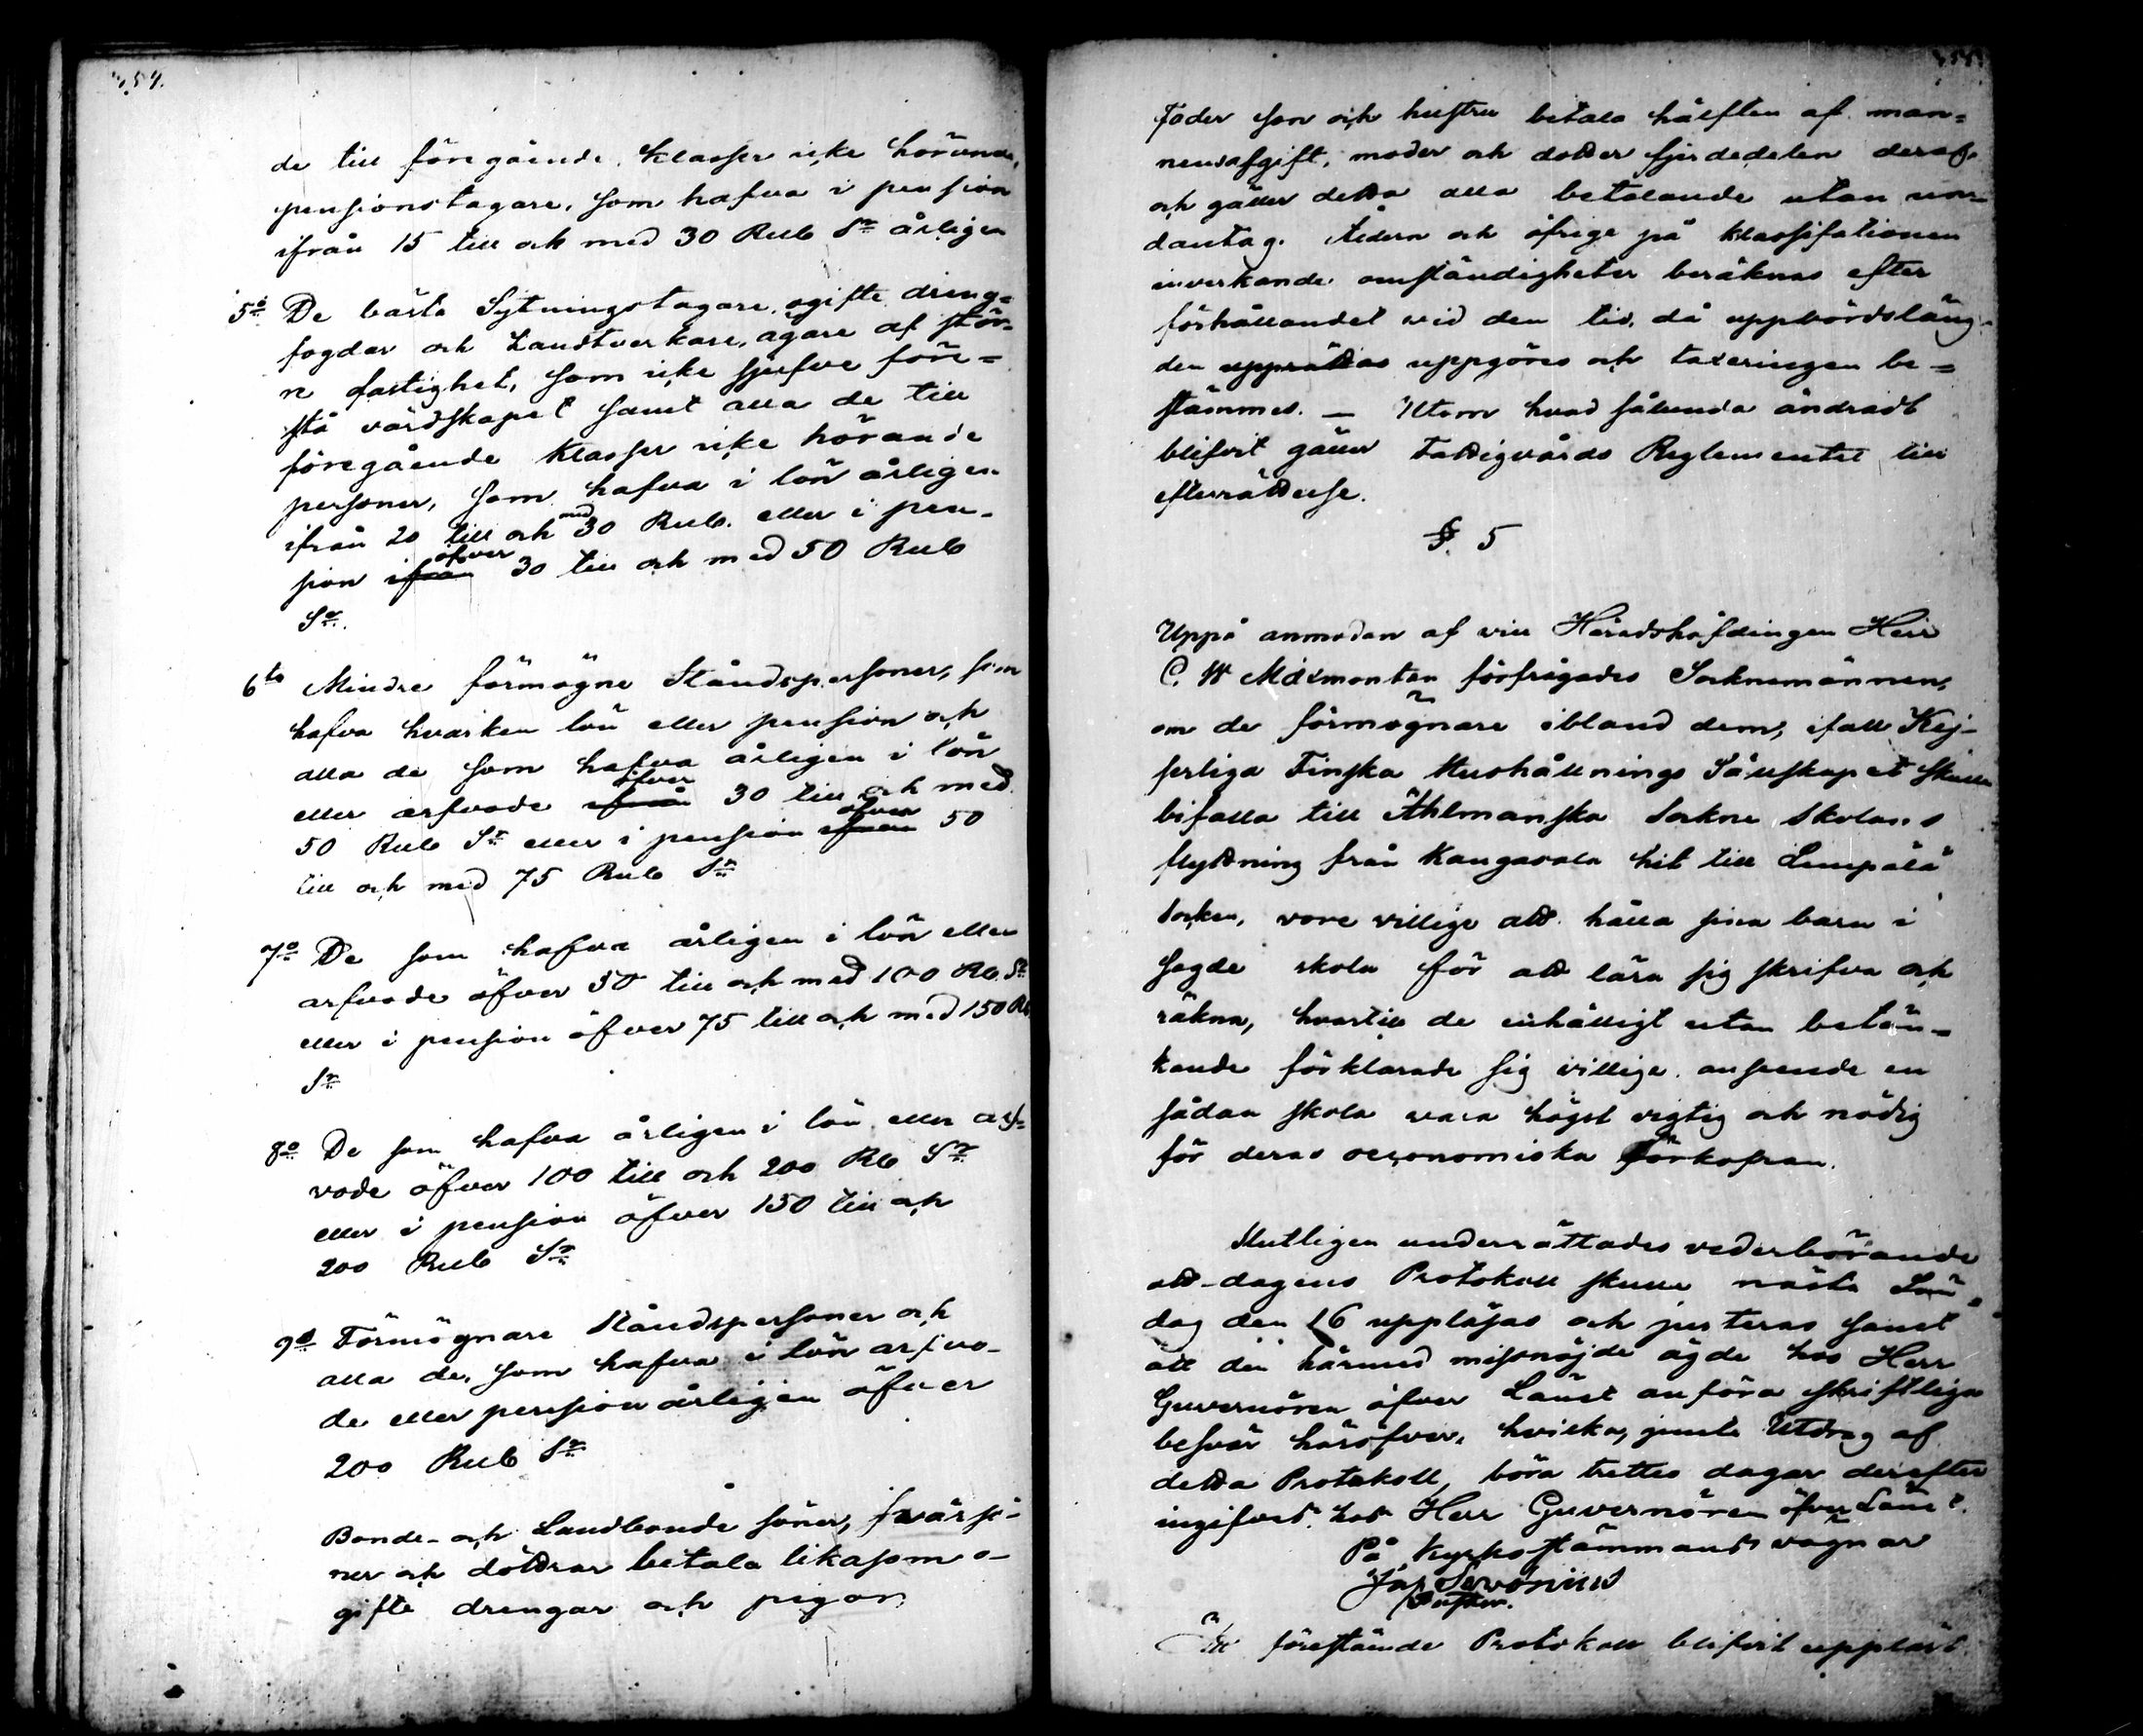 454.
de till föregående Klasser icke hörande,
pensionstagare, som hafva i pension
ifrån 15 till och med 30 Rub Sr årligen
5o De bästa Sytningstagare, ogifte dreng-
fogdar och Landtverkare, ägare af stör-
re fastighet, som icke sjelfve före-
stå värdskapet samt alla de till
föregående Klasser icke hörande
personer, som hafva i lön årligen
ifrån 20 till och med 30 Rub. eller i pen-
sion ifrån öfver 30 till och med 50 Rub
Sr.
6to Mindre förmögne Ståndspersoner, som
hafva hvarken lön eller pension och
alla de som hafva årligen i lön
eller arfvode ifrån öfver 30 till och med
50 Rub Sr eller i pension ifrån öfver 50
till och med 75 Rub Sr
7o De som hafva årligen i lön eller
arfvode öfver 50 till och med 100 Rb. Sr
eller i pension öfver 75 till och med 150 Rb
Sr
8o De som hafva årligen i lön eller arf-
vode öfver 100 till och 200 Rb Sr
eller i pension öfver 150 till och
200 Rub Sr
9o Förmögnare Ståndspersoner och
alla de, som hafva i lön arfvo-
de eller pension årligen öfver
200 Rub Sr
Bonde- och Landbonde söner, svärsö-
ner och döttrar betala likasom o-
gifte drengar och pigor
Fader son och hustru betala hälften af man-
nensafgift, moder och dotter fjerdedelen deraf,
och gäller detta alla betalande utan un-
dantag. Åldern och öfrige på klassifationen
inverkande omständigheter beräknas efter
förhållandet vid den tid, då uppbördsläng-
den upprättas uppgöres och taxeringen be-
stämmes. — Utom hvad sålunda ändradt
blifvit gäller Fattigvårds Reglementet till
efterrättelse.
§. 5
Uppå anmodan af vill Häradshöfdingen Herr
C. W Mäxmontan förfrågades Socknemännen,
om de förmögnare ibland dem, ifall Kej-
serliga Finska Hushållnings Sällskapet skulle
bifalla till Åhlmanska Sockne Skolans
flyttning från Kangasala hit till Lempälä
Socken, vore villige att hålla sina barn i
sagde skola för att lära sig skrifva och
räkna, hvartill de enhälligt utan betän-
kande förklarade sig villige, anseende en
sådan skola vara högst vigtig och nödig
för deras oeconomiska förkofran.
Slutligen underrättades vederbörande
att dagens Protokoll skulle nästa Sön-
dag den 16 uppläsas och justeras samt
att den härmed missnöjde ägde hos Herr
Guvernören öfver Länet anföra skriftliga
besvär häröfver, hvilka, jemte Utdrag af
detta Protokoll, böra trettio dagar derefter
ingifvas hos Herr Guvernören öfver Länet.
På Kyrkostämmans vägnar
Jac Servonius
Pastor.
Att förestående Protokoll blifvit uppläst